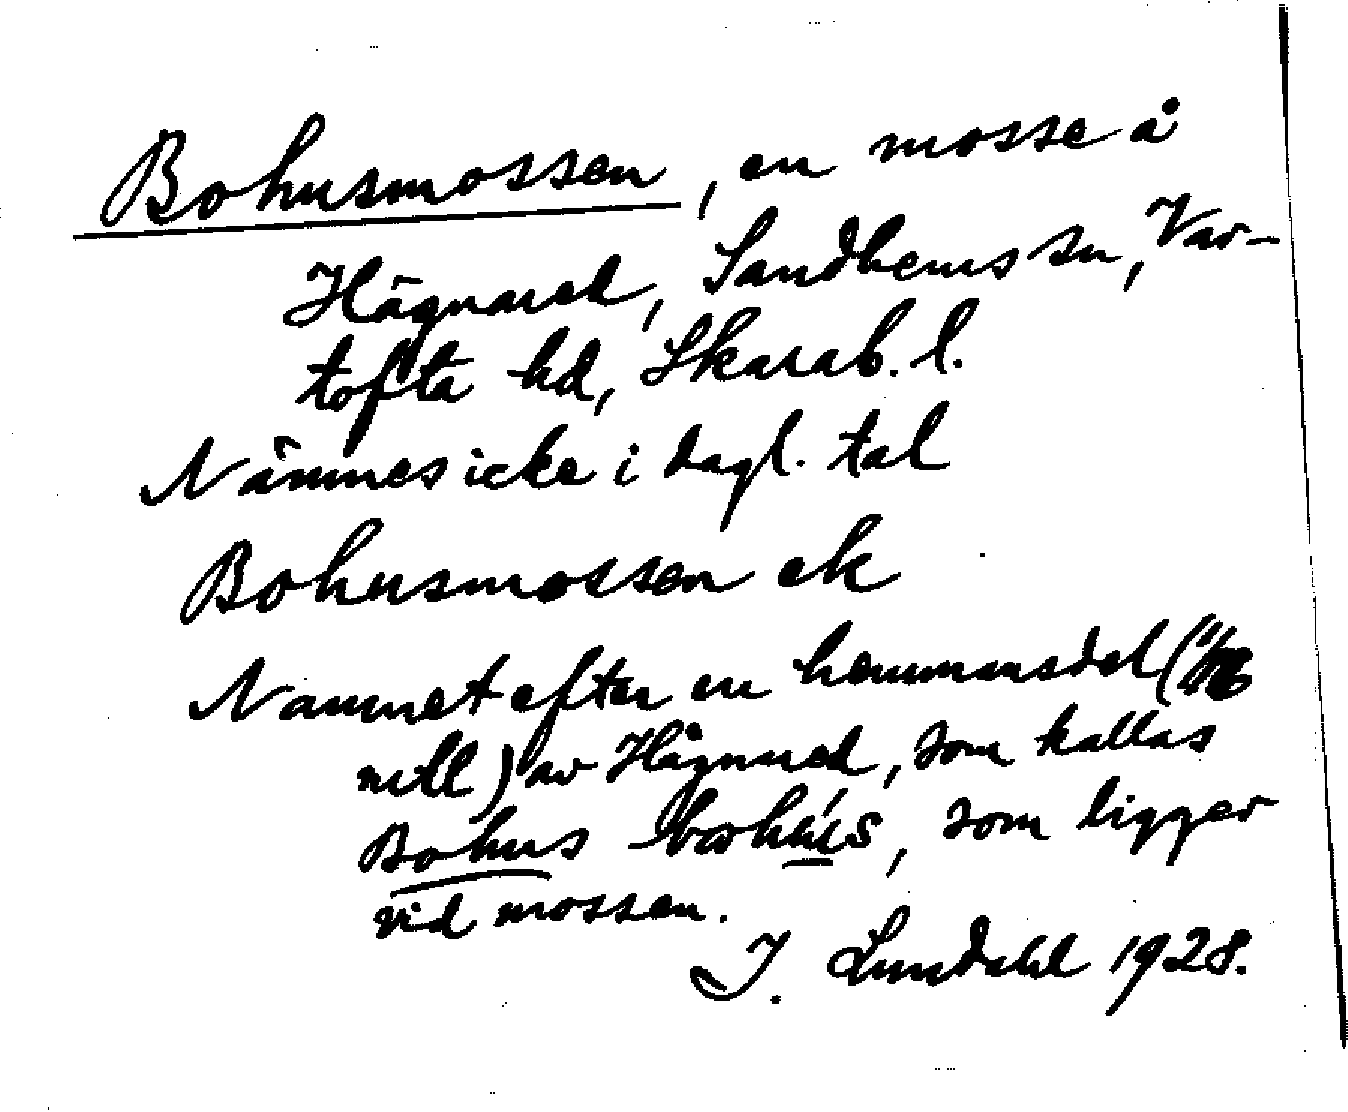 Bohusmossen, en mosse å
Hägnared, Sandhems sn, Var-
tofta hd, Skarab. l.
Nämnes icke i dagl. tal
Bohusmossen ek
Namnet efter en hemmansdel (1/16
mtl) av Hägnared, som kallas
Bohus, som ligger
vid mossen.
I. Lundahl 1928.